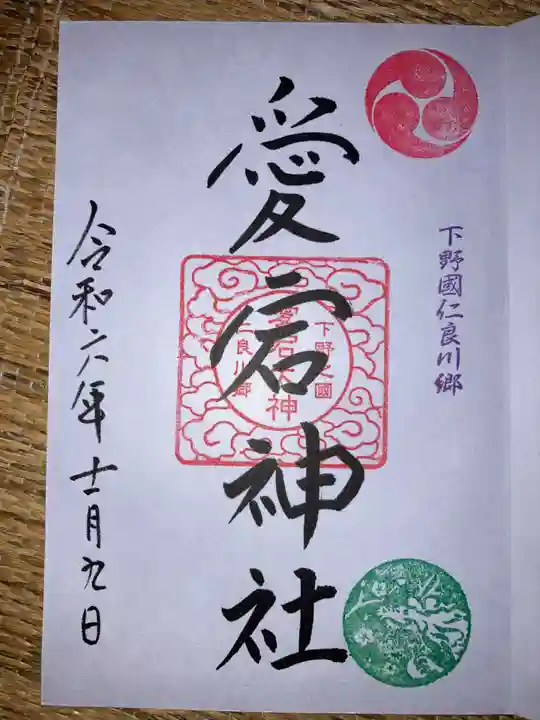 下野國仁良川郷
愛宕神社
下野之國
仁良川郷
令和六年十一月九日